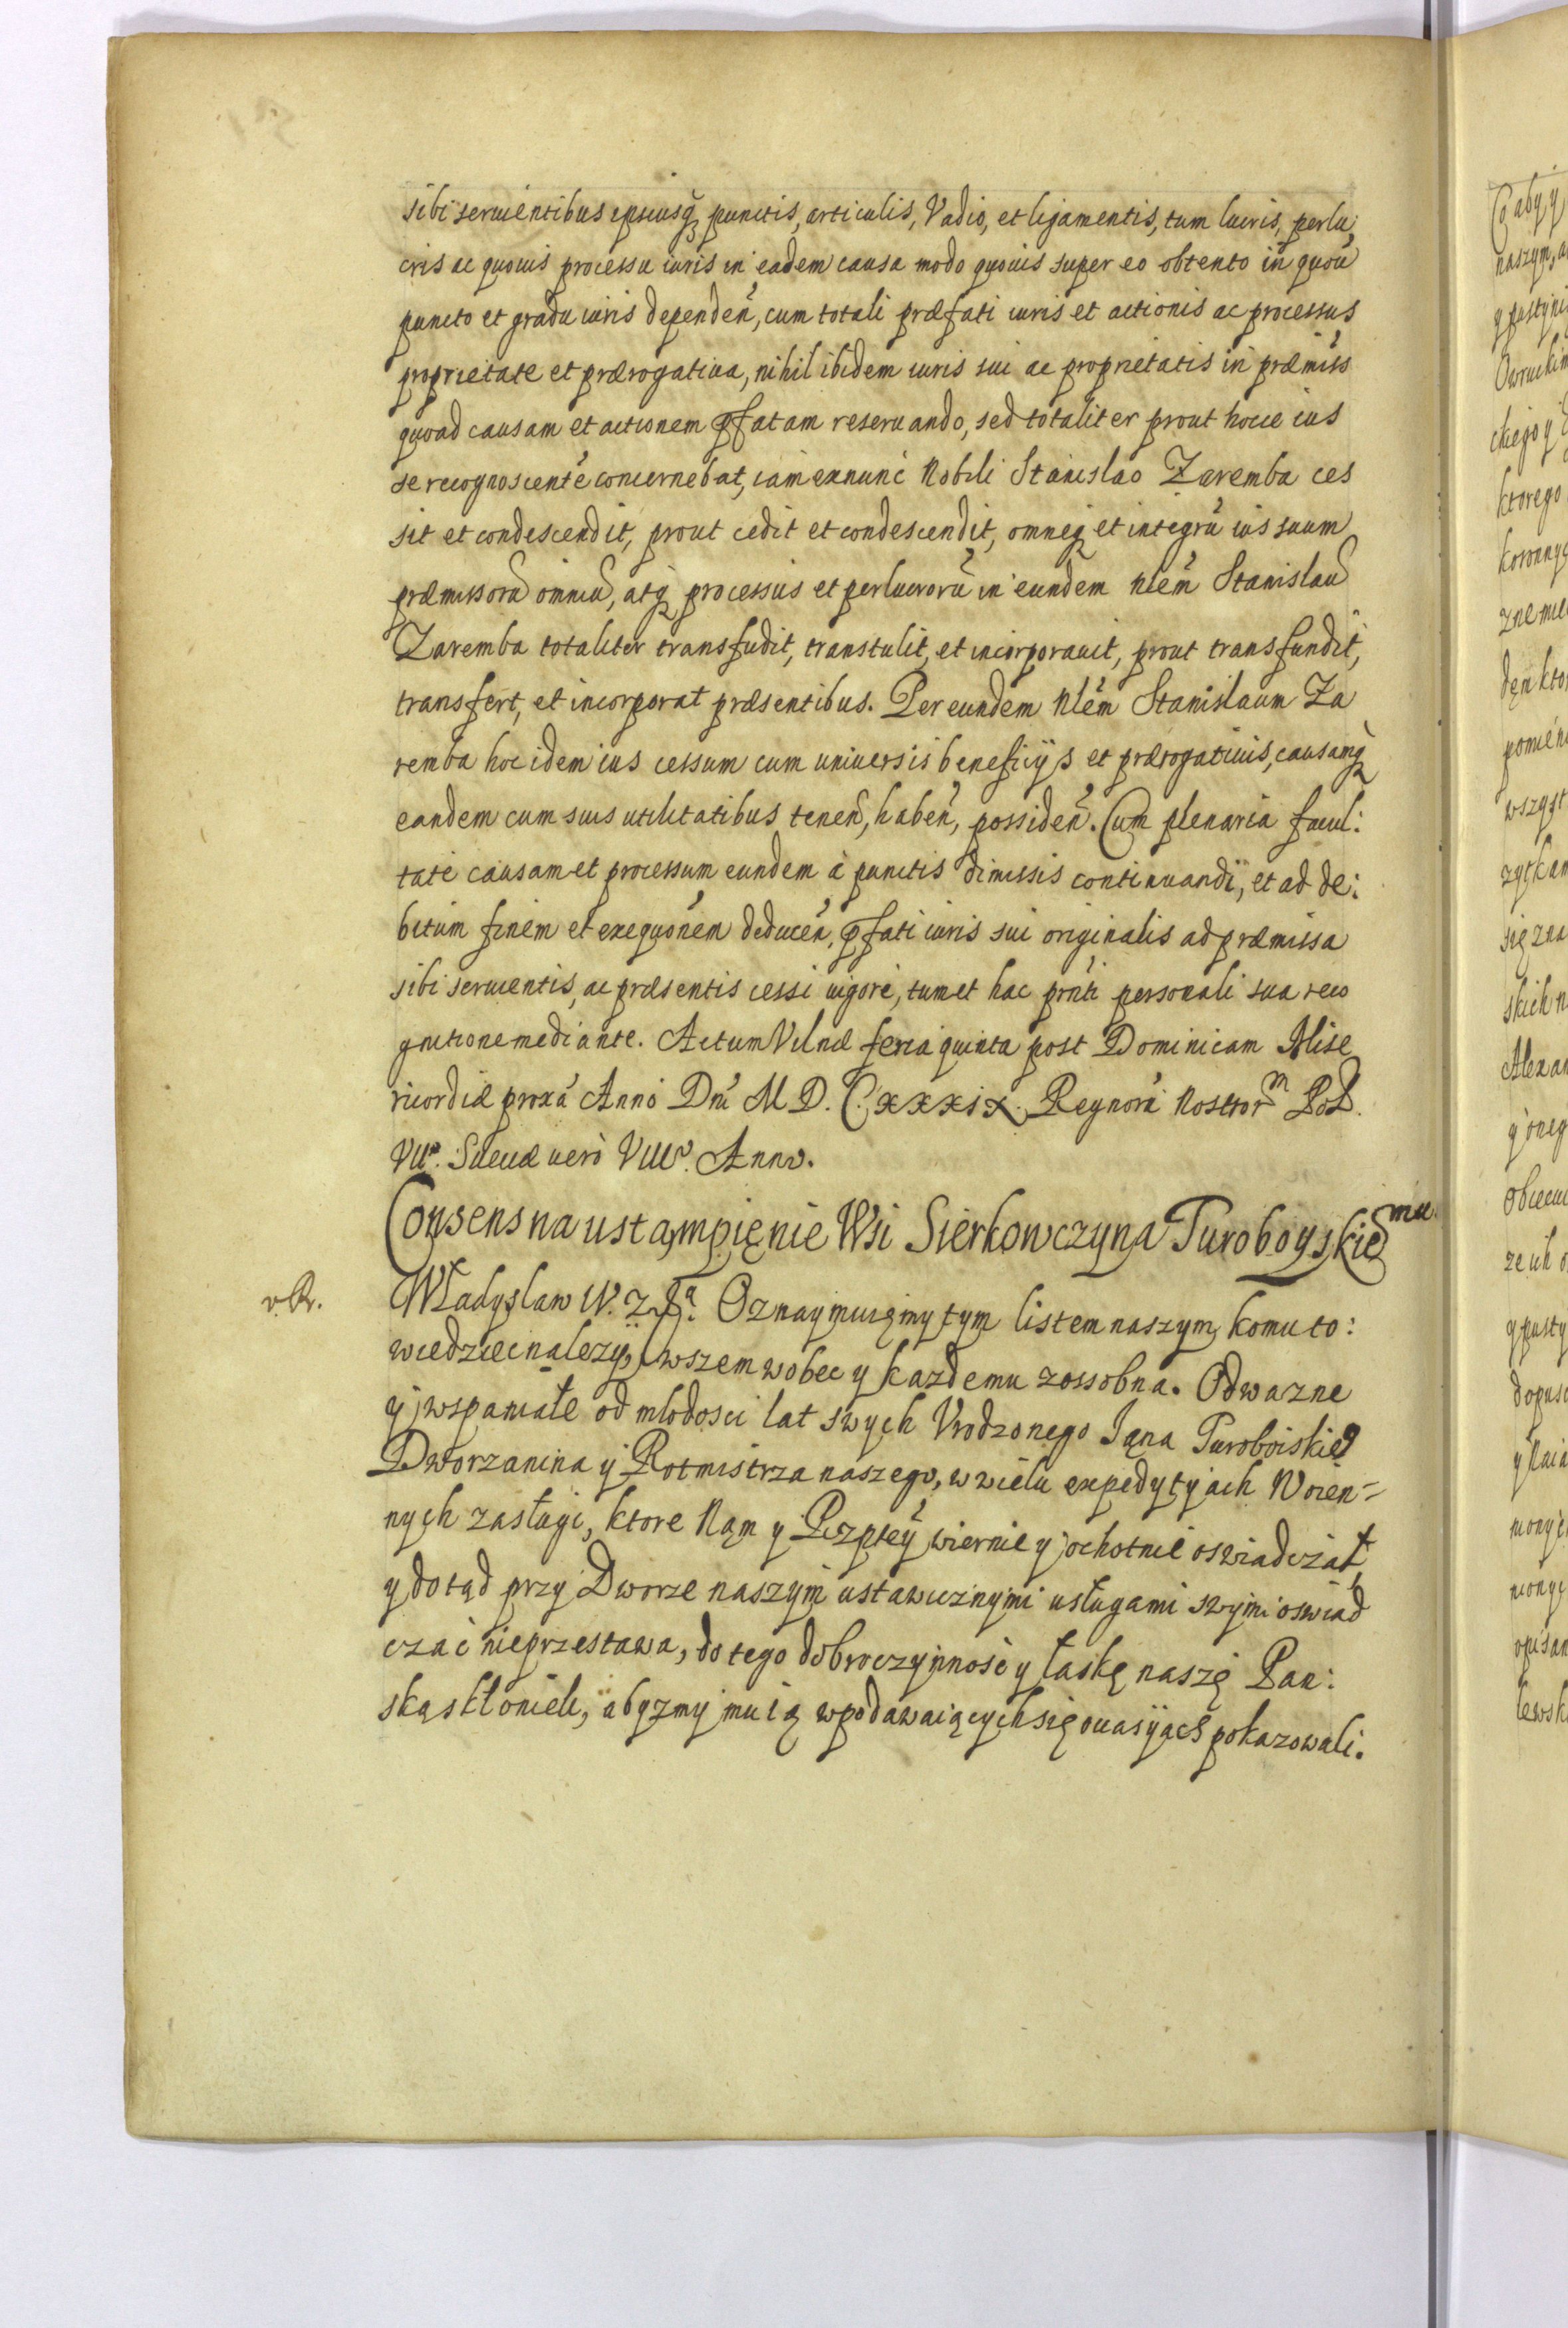 sibi seruientibus ipsiusq₃ punctis, articulis, Vadio, et ligamentis, tum lucris, perlu,
cris ac quouis processu iuris in eadem causa modo quouis super eo obtento in quou̅
puncto et gradu iuris dependeñ, cum totali præfati iuris et actionis ac processus
proprietate et prærogatiua, nihil ibidem iuris sui ac proprietatis in præmiss
quoad causam et actionem pfatam reseruando, sed totaliter prout hocce ius
se recognoscente concernebat, iam exnunc Nobili Stanislao Zaremba ces
sit et condescendit, prout cedit et condescendit, omneq₃ et integrũ ius suum
præmissorũ omniũ, atq₃ processus et perlucrorũ in eundem Nlẽm Stanislaũ
Zaremba totaliter transfudit, transtulit, et incorporauit, prout transfundit,
transfert, et incorporat præsentibus. Per eundem Nlẽm Stanislaum Za
remba hoc idem ius cessum cum uniuersis beneficÿs et prærogatiuis, causamq₃
eandem cum suis utilitatibus teneñ, habeñ, possideñ. Cum plenaria facul:
tate causam et processum eundem à punctis dimissis continuandi, et ad de:
bitum finem et exequõnem deduceñ, pfati iuris sui originalis ad præmissa
sibi seruientis, ac præsentis cessi uigore, tum et hac pñti personali sua reco
gnitione mediante. Actum Vilnæ feria quinta post Dominicam Mise
ricordiæ proxã Anno Dni M D. C. xxxix. Regnorũ Nostrorm Pol.
VIIo. Sueciæ uerò VIIIo. Anno.
Consens na ustąmpięnie Wsi Sierkowczyna Turoboyskiemu.
v. R.
Władysław IV. z Ła. Oznaymuięmy tym listem naszym, komu to:
wiedziec nalezy, wszem wobec y kazdemu zossobna. Odwazne
y wspaniałe od młodosci lat swych Vrodzonego Iana Turoboiskie
Dworzanina y Rotmistrza naszego, w wielu expedytyiach Woien=
nych zasługi, ktore Nam y Rzptey wiernie y ochotnie oswiadczał,
y dotąd przy Dworze naszym ustawicznymi usługami swymi oswiad
czać nieprzestawa, do tego dobroczynnosc y łaskę naszę Pan:
ską skłonieli, abysmy mu ią w podawaiących się ocasÿach pokazowali.